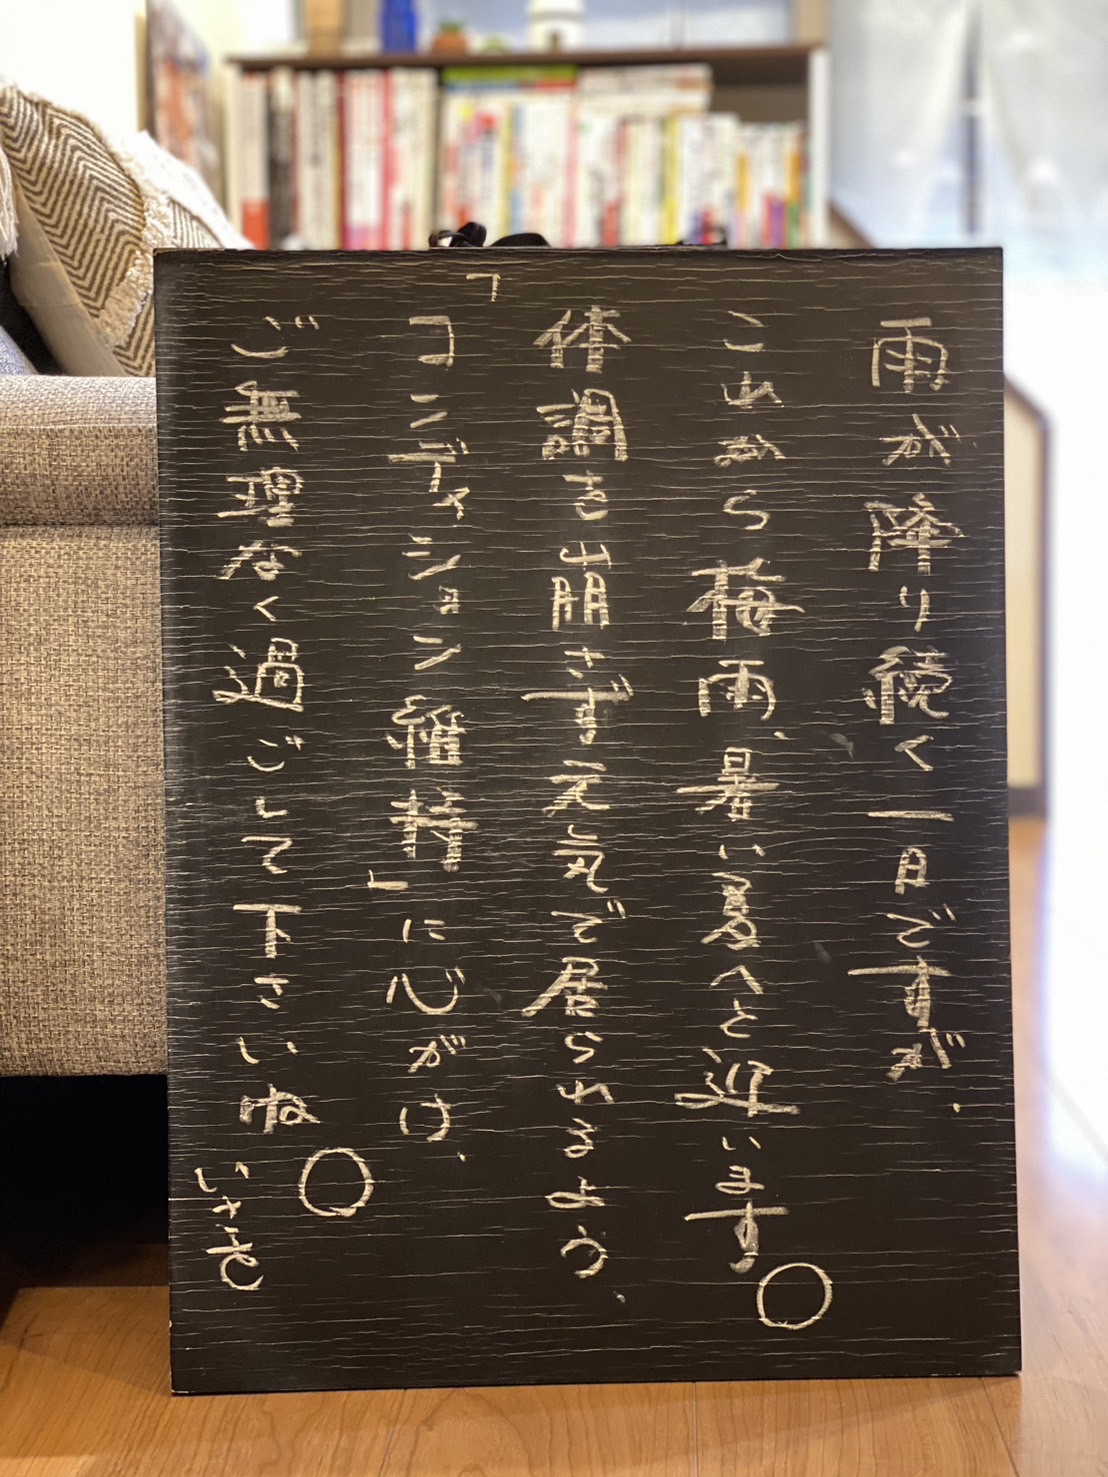 雨が降り続く一日ですが、
これから梅雨、暑い夏へと迎います。
体調を崩さず元気で居られるよう、
「コンディション維持」に心がけ、
ご無理なく過ごして下さいね。
いさを